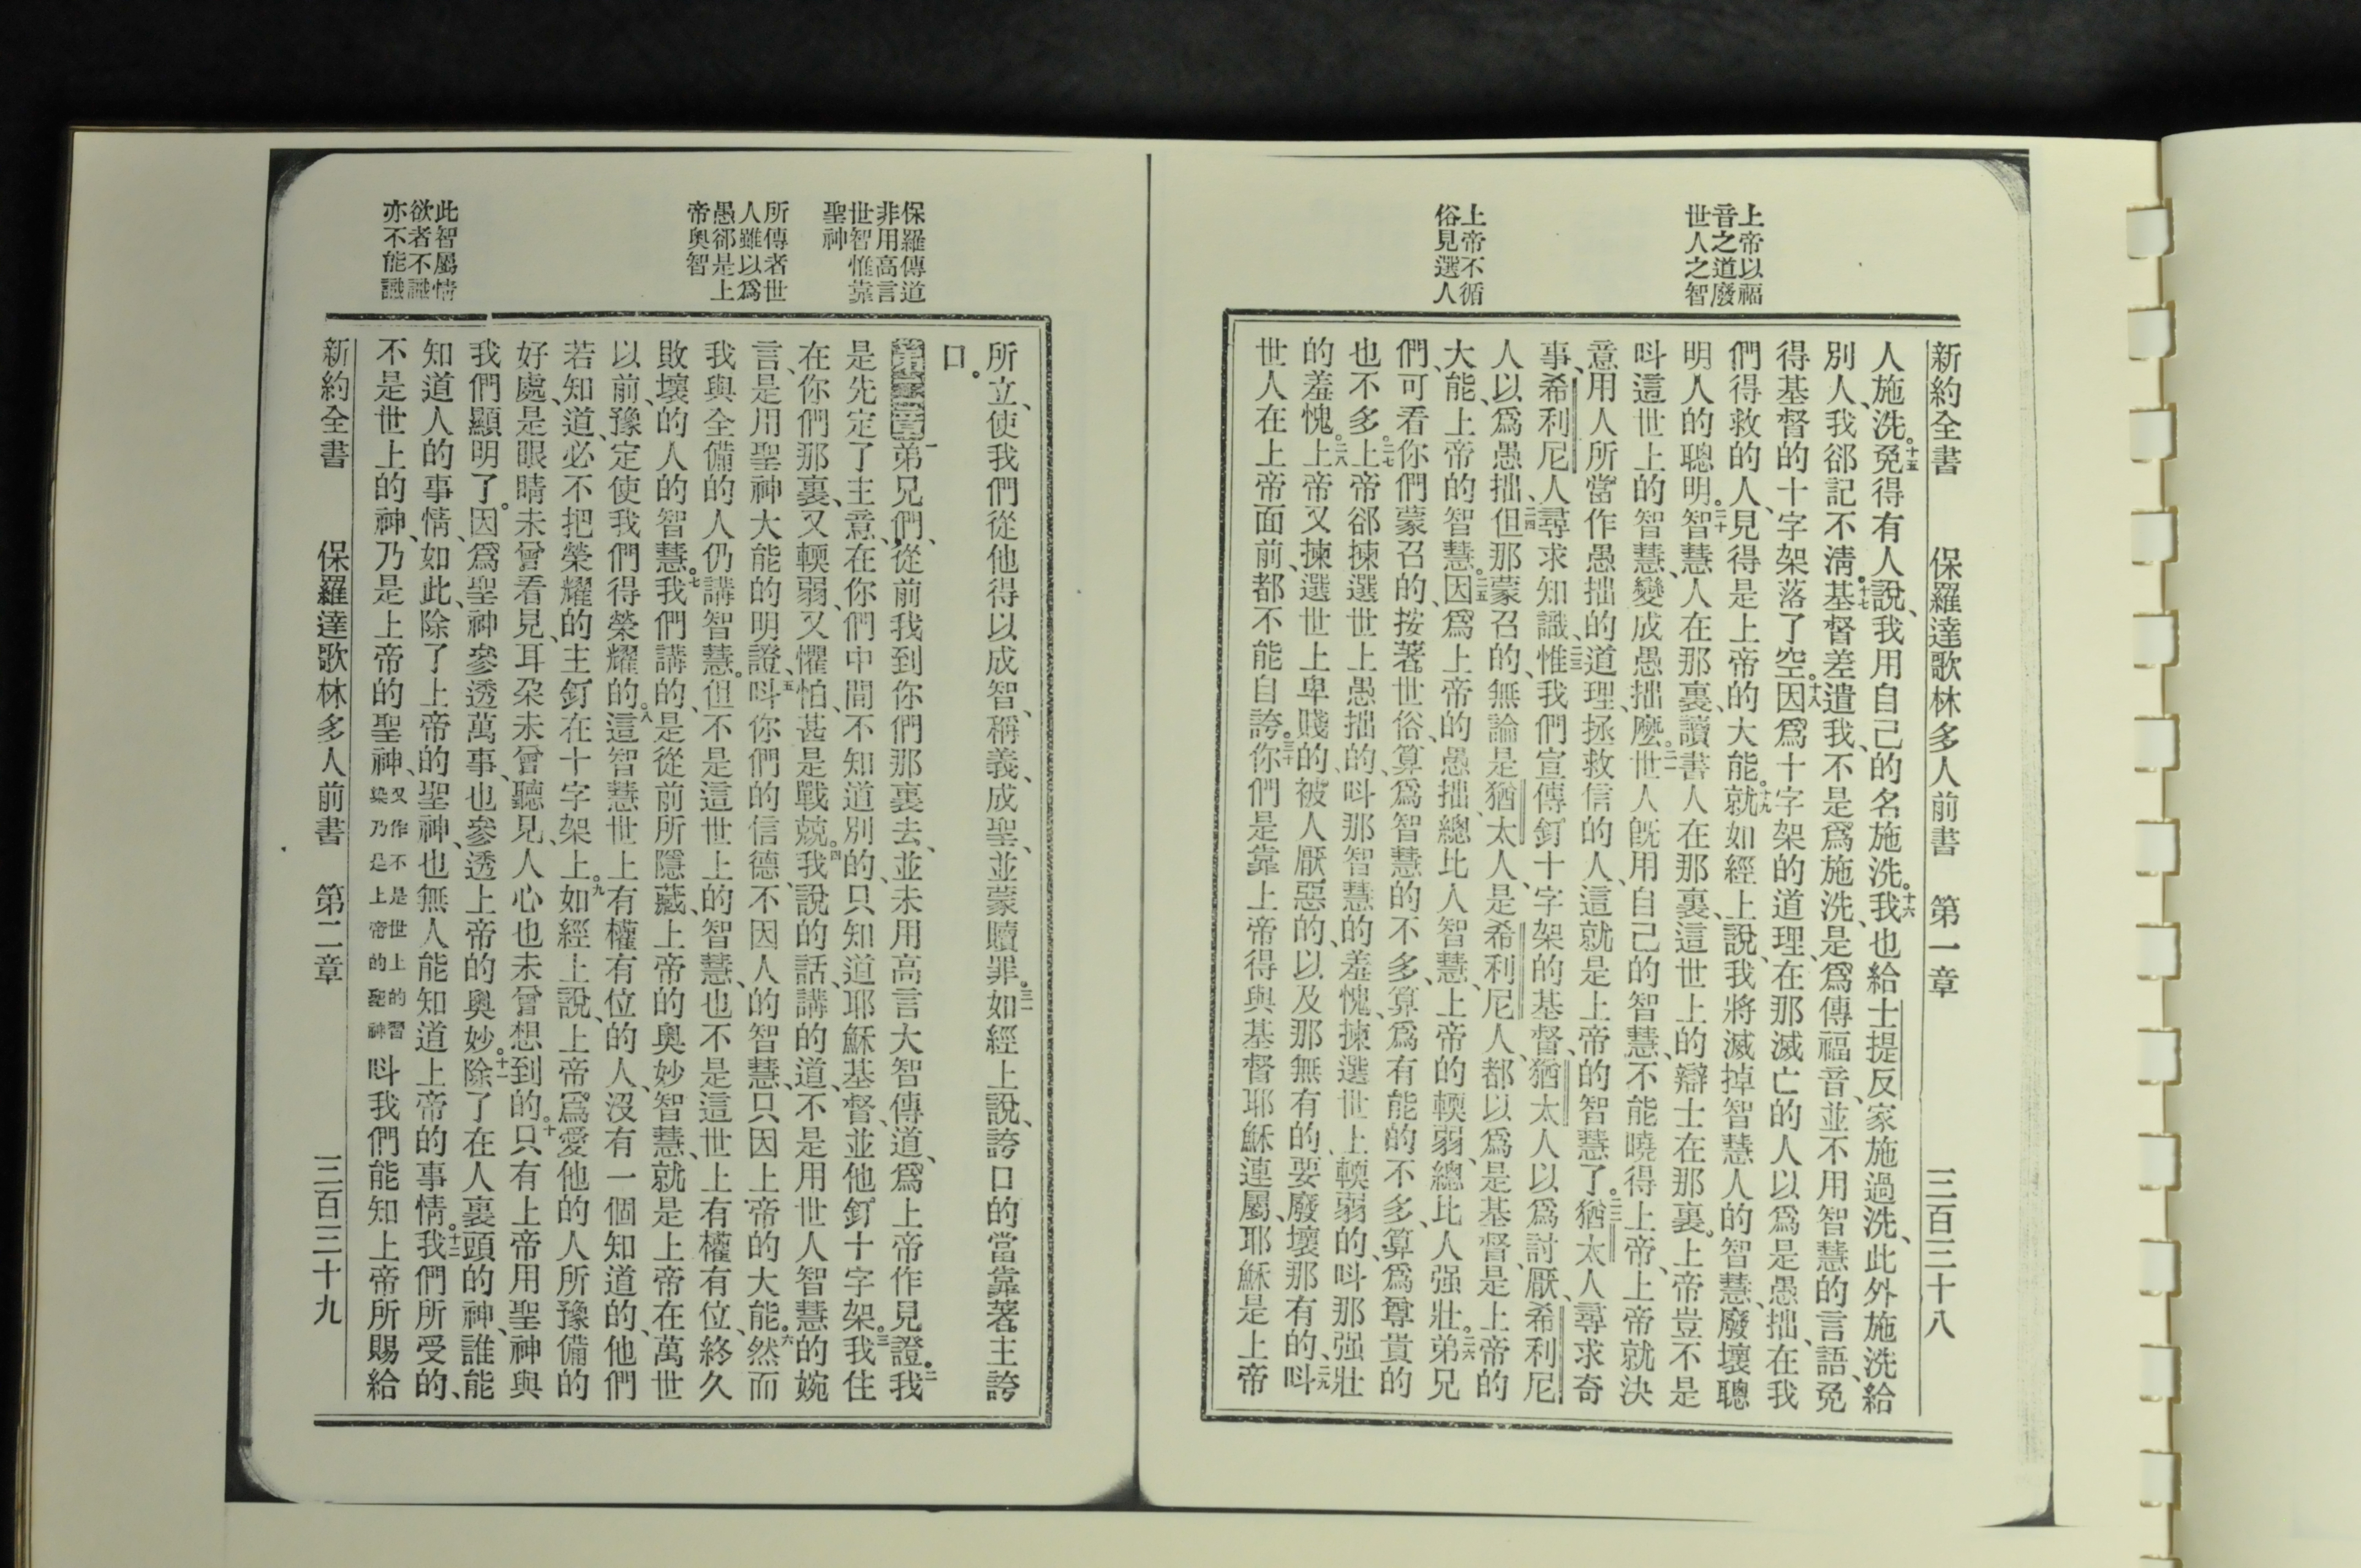 上帝以福
音之道廢
世人之智
上帝不循
俗見選人
新約全書 保羅達歌林多人前書 第一章 三百三十八
人施洗。十五免得有人說、我用自己的名施洗。十六我也給士提反家施過洗、此外施洗給
別人、我郤記不清。十七基督差遣我、不是爲施洗、是爲傳福音、並不用智慧的言語、免
得基督的十字架落了空。十八因爲十字架的道理、在那滅亡的人以爲是愚拙、在我
們得救的人、見得是上帝的大能。十九就如經上說、我將滅掉智慧人的智慧、廢壞聰
明人的聰明。二十智慧人在那裏、讀書人在那裏、這世上的辯士在那裏。上帝豈不是
呌這世上的智慧、變成愚拙麽。二一世人旣用自己的智慧、不能曉得上帝、上帝就決
意用人所當作愚拙的道理、拯救信的人、這就是上帝的智慧了。二二猶太人尋求奇
事、希利尼人尋求知識、二三惟我們宣傳釘十字架的基督、猶太人以爲討厭、希利尼
人以爲愚拙、二四但那蒙召的、無論是猶太人、是希利尼人、都以爲是基督、是上帝的
大能、上帝的智慧。二五因爲上帝的愚拙、總比人智慧、上帝的輭弱、總比人强壯。二六弟兄
們、可看你們蒙召的、按著世俗、算爲智慧的不多、算爲有能的不多、算爲尊貴的
也不多。二七上帝郤揀選世上愚拙的、呌那智慧的羞愧、揀選世上輭弱的、呌那强壯
的羞愧。二八上帝又揀選世上卑賤的、被人厭惡的、以及那無有的、要廢壞那有的、二九呌
世人在上帝面前、都不能自誇。三十你們是靠上帝得與基督耶穌連屬、耶穌是上帝
保羅傳道
非用高言
世智惟靠
聖神
所傳者世
人雖以爲
愚郤是上
帝奥智
此智屬情
欲者不識
亦不能識
所立、使我們從他得以成智、稱義、成聖、並蒙贖罪。三一如經上說、誇口的當靠著主誇
口。
第二章一弟兄們、從前我到你們那裏去、並未用高言大智傳道、爲上帝作見證。二我
是先定了主意、在你們中間不知道別的、只知道耶穌基督、並他釘十字架。三我住
在你們那裏、又輭弱、又懼怕、甚是戰兢。四我說的話、講的道、不是用世人智慧的婉
言、是用聖神大能的明證、五呌你們的信德、不因人的智慧、只因上帝的大能。六然而
我與全備的人仍講智慧。但不是這世上的智慧、也不是這世上有權有位、終久
敗壞的人的智慧。七我們講的、是從前所隱藏、上帝的奥妙智慧、就是上帝在萬世
以前、豫定使我們得榮耀的。八這智慧世上有權有位的人、沒有一個知道的、他們
若知道、必不把榮耀的主釘在十字架上。九如經上說、上帝爲愛他的人所豫備的
好處、是眼睛未曾看見、耳朶未曾聽見、人心也未曾想到的。十只有上帝用聖神與
我們顯明了。因爲聖神參透萬事、也參透上帝的奥妙。十一除了在人裏頭的神、誰能
知道人的事情、如此、除了上帝的聖神、也無人能知道上帝的事情。十二我們所受的、
不是世上的神、乃是上帝的聖神、又作不是世上的習染乃是上帝的聖神呌我們能知上帝所賜給
新約全書 保羅達歌林多人前書 第二章 三百三十九